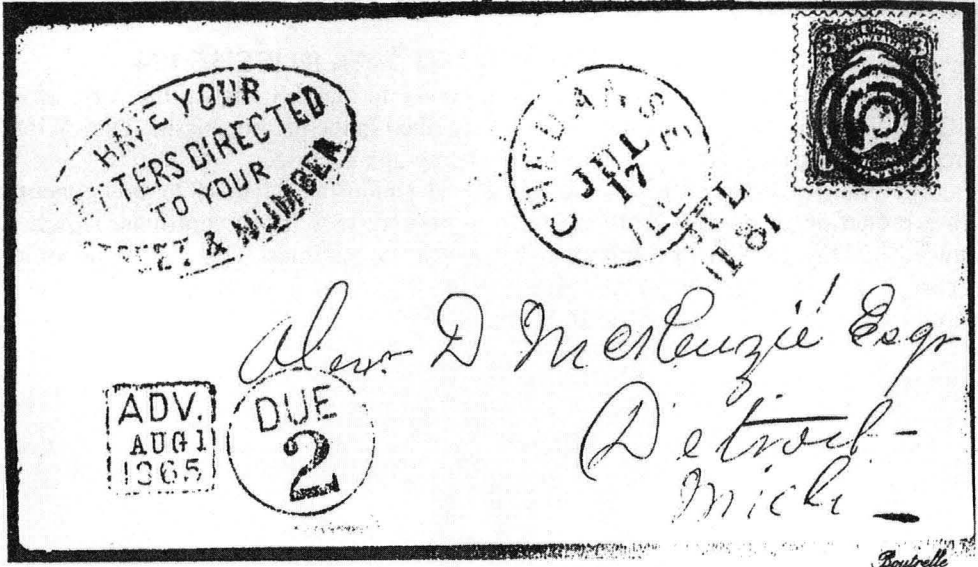 HAVE YOUR
ETTERS DIRECTED
TO YOUR
EET & NUMBER
JUL
17
JUL
18
3 3
Alexr D McKenzie Esqr
Detroit
Mich
ADV.
AUG 1
1865
DUE
2
Boutrelle